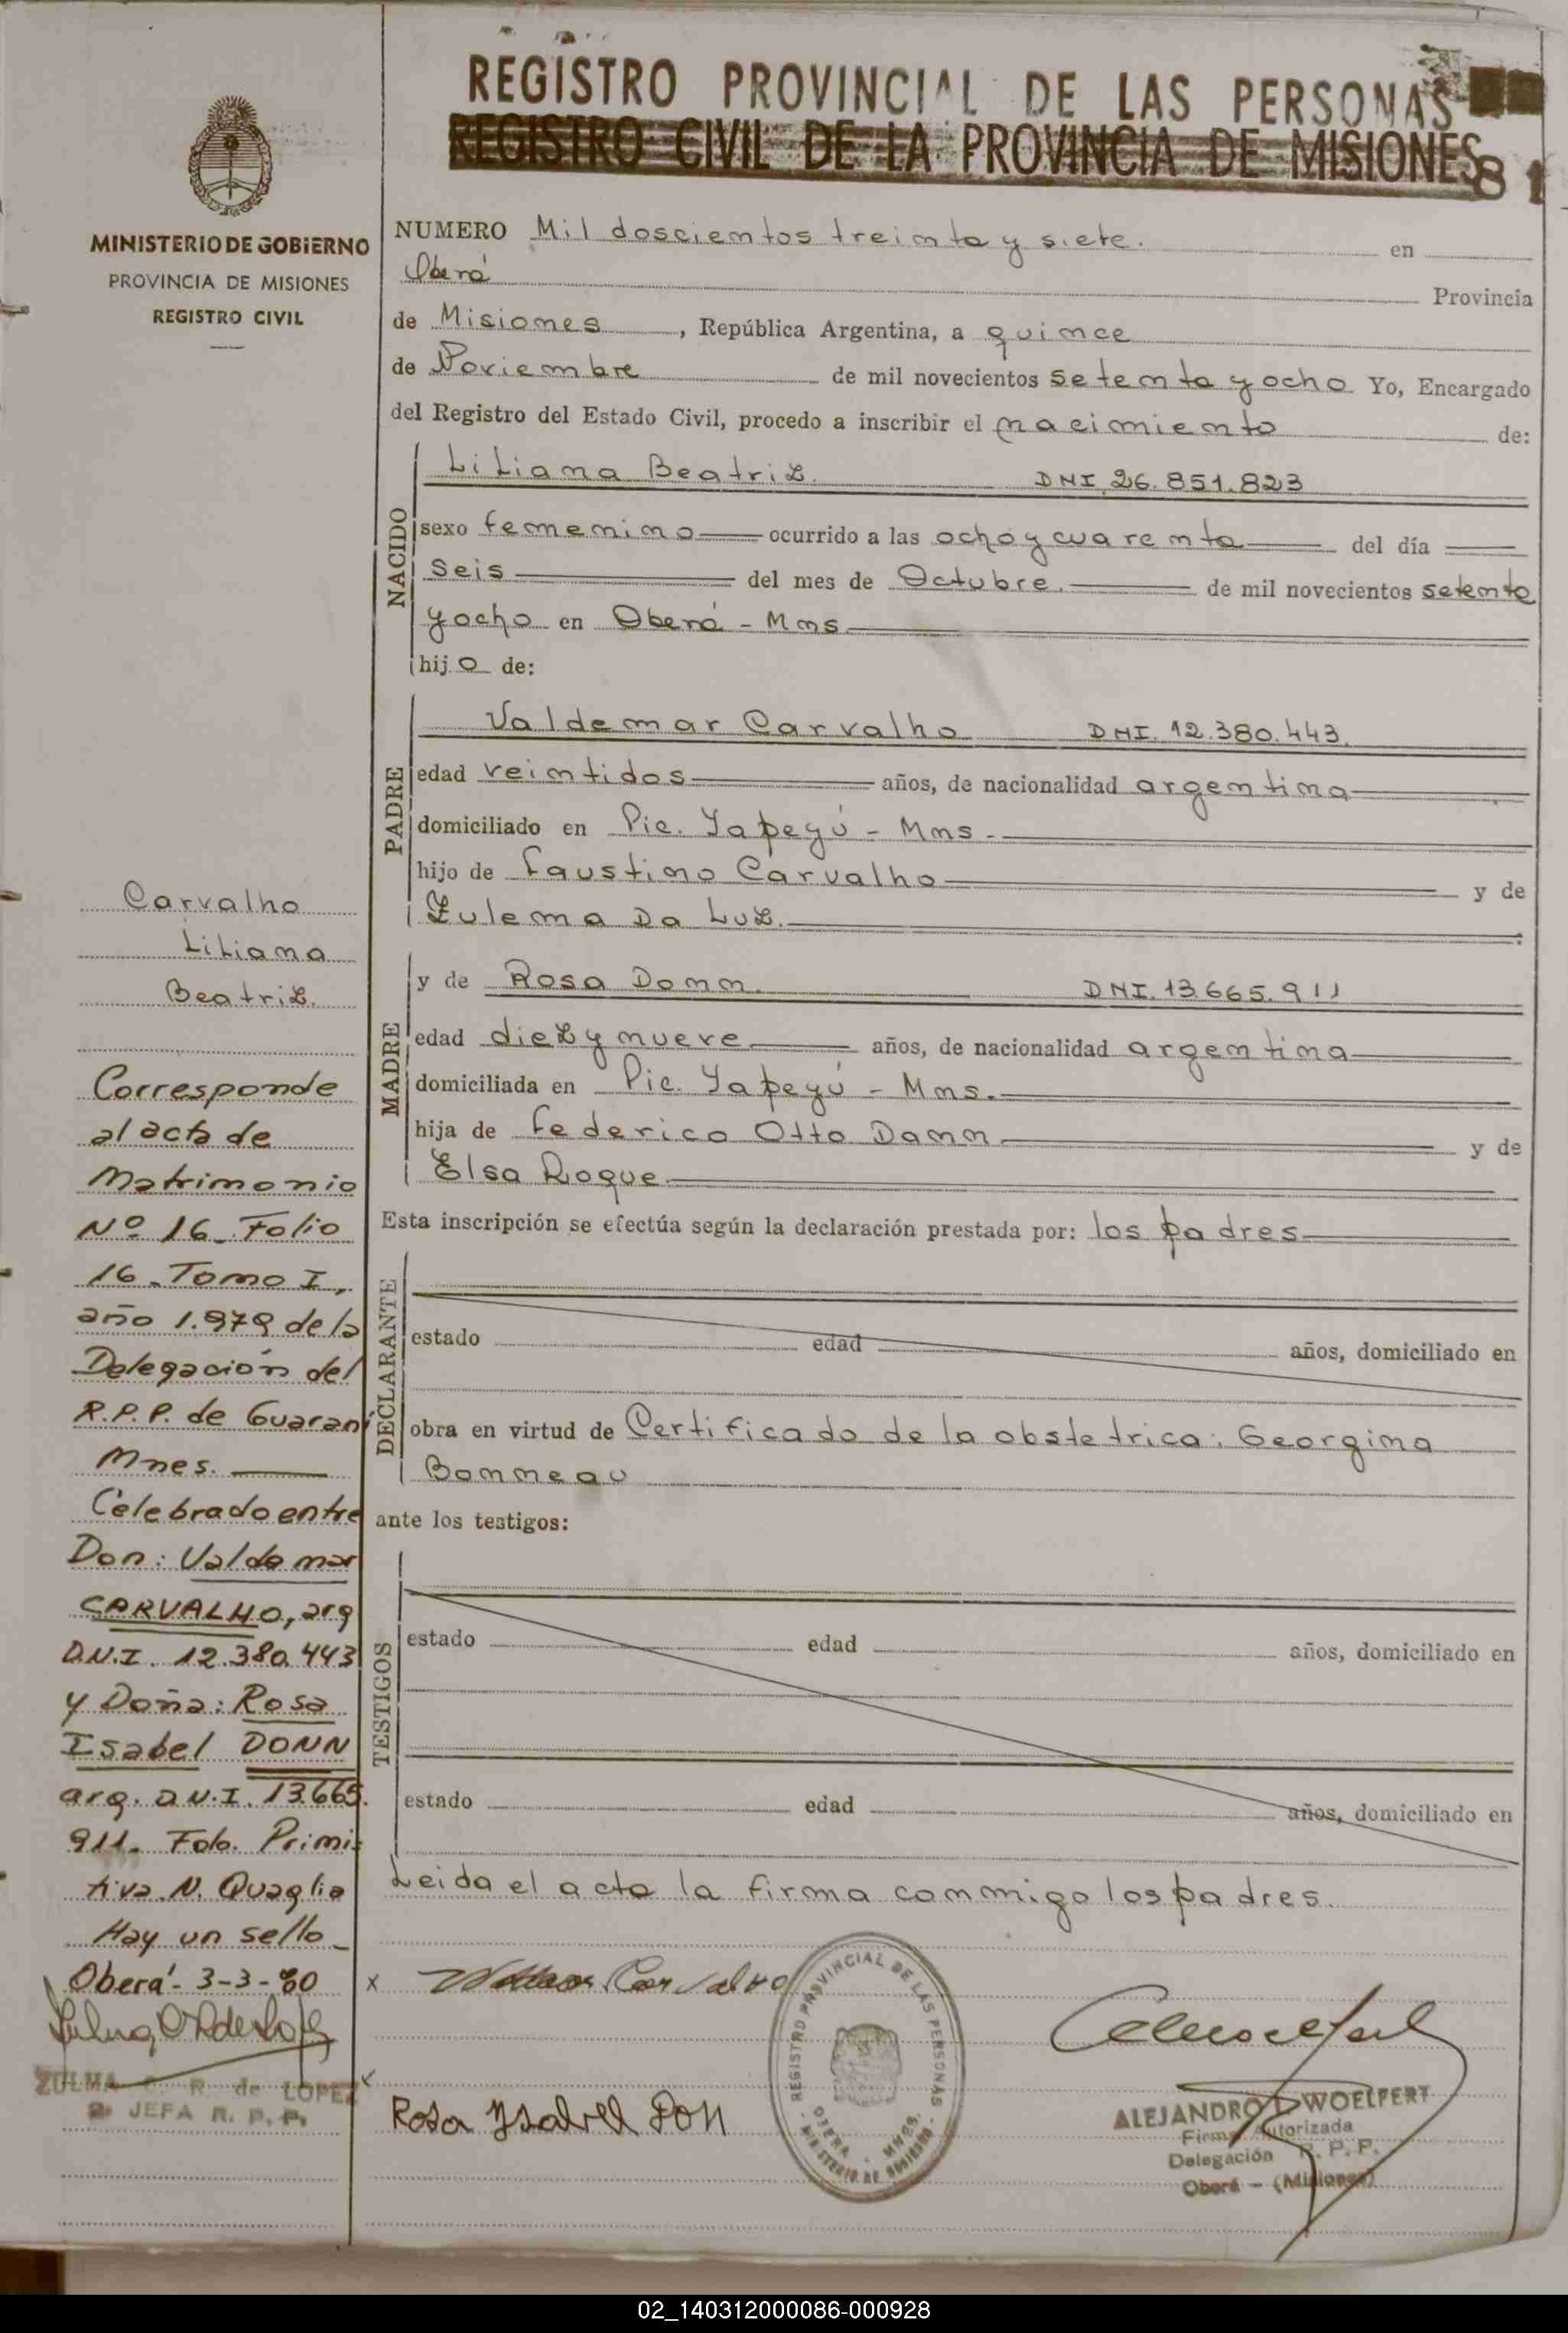 REGISTRO PROVINCIAL DE LAS PERSONAS
REGISTRO CIVIL DE LA PROVINCIA DE MISIONES
81
MINISTERIO DE GOBIERNO
PROVINCIA DE MISIONES
REGISTRO CIVIL
NUMERO Mil doscientos treinta y siete. en
Oberá Provincia
de Misiones, República Argentina, a quince
de Noviembre de mil novecientos setenta y ocho Yo, Encargado
del Registro del Estado Civil, procedo a inscribir el nacimiento de:
NACIDO
Liliana Beatriz. DNI 26.851.823
sexo femenino ocurrido a las ocho y cuarenta del día
seis del mes de Octubre. de mil novecientos setenta
y ocho en Oberá - Mns
hijo de:
PADRE
Valdemar Carvalho DNI. 12.380.443.
edad veintidos años, de nacionalidad argentina
domiciliado en Pic. Yapeyú - Mns.
hijo de Faustino Carvalho y de
Zulema Da Luz.
MADRE
y de Rosa Donn. DNI. 13.665.911
edad diez y nueve años, de nacionalidad argentina
domiciliada en Pic. Yapeyú - Mns.
hija de Federico Otto Dann y de
Elsa Roque
Esta inscripción se efectúa según la declaración prestada por: los padres
DECLARANTE
estado edad años, domiciliado en
obra en virtud de Certificado de la obstetrica: Georgina
Bonneau
ante los testigos:
TESTIGOS
estado edad años, domiciliado en
estado edad años, domiciliado en
Leida el acta la firma conmigo los padres.
Carvalho
Liliana
Beatriz.
Corresponde
al acta de
Matrimonio
Nº 16. Folio
16. Tomo I,
año 1.979 de la
Delegación del
R.P.P. de Guaraní
Mnes.
Celebrado entre
Don: Valdemar
CARVALHO, arg
D.N.I. 12.380.443
y Doña: Rosa
Isabel DONN
arg. D.N.I. 13.665.
911. Fdo. Primi-
tiva N. Quaglia
Hay un sello
Oberá - 3-3-80
ZULMA C. R. de LOPEZ
2º JEFA R. P. P.
x Carvalho
Rosa Ysabel Don
REGISTRO PROVINCIAL DE LAS PERSONAS
OBERA - MNES.
MINISTERIO DE GOBIERNO
ALEJANDRO WOELFERT
Firma Autorizada
Delegación R. P. P.
Oberá - (Misiones)
02_140312000086-000928